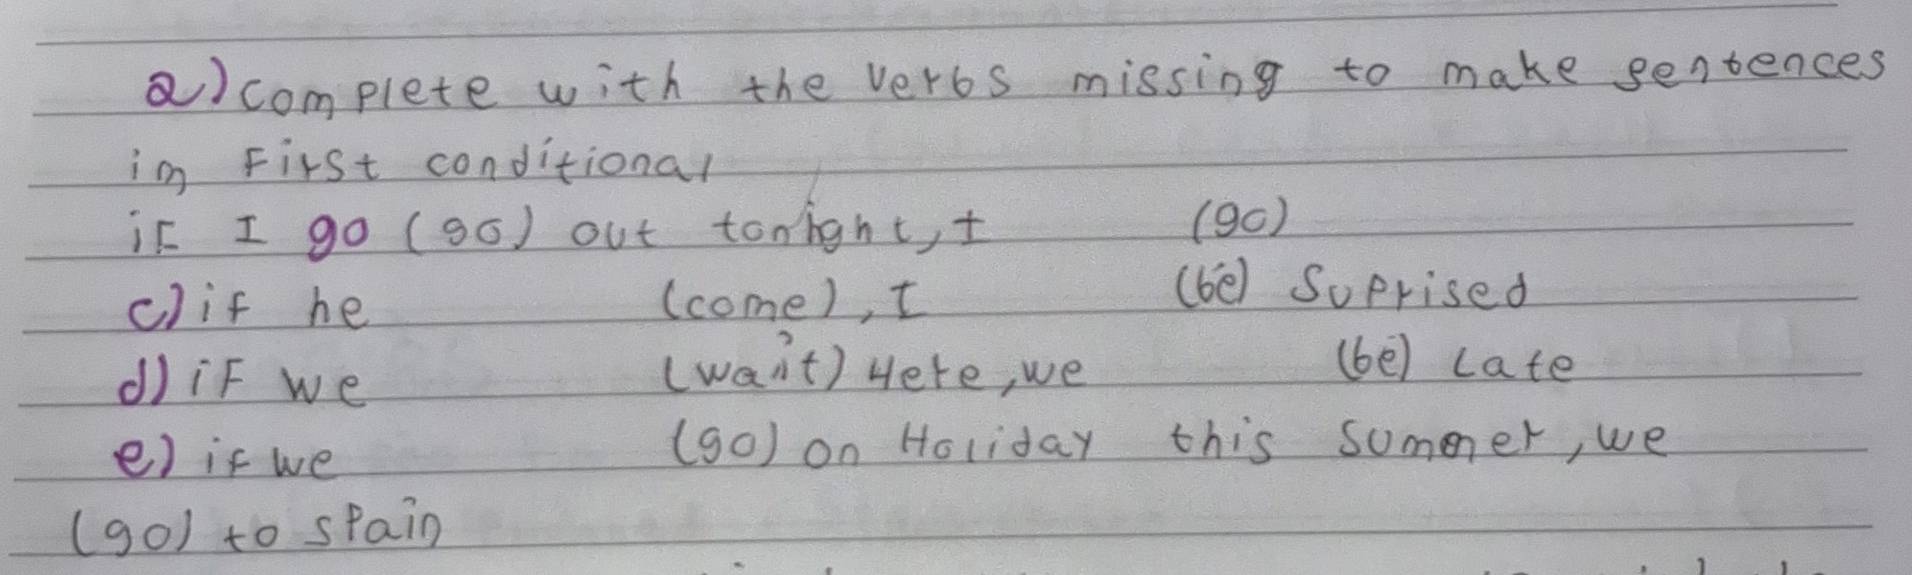 a) complete with the verbs missing to make sentences
in First conditional
if I go (go) out tonight, I (go)
c) if he (come), I (be) Suprised
d) if we (wait) Here, we (be) Late
e) if we (go) on Holiday this Summer, we
(go) to spain